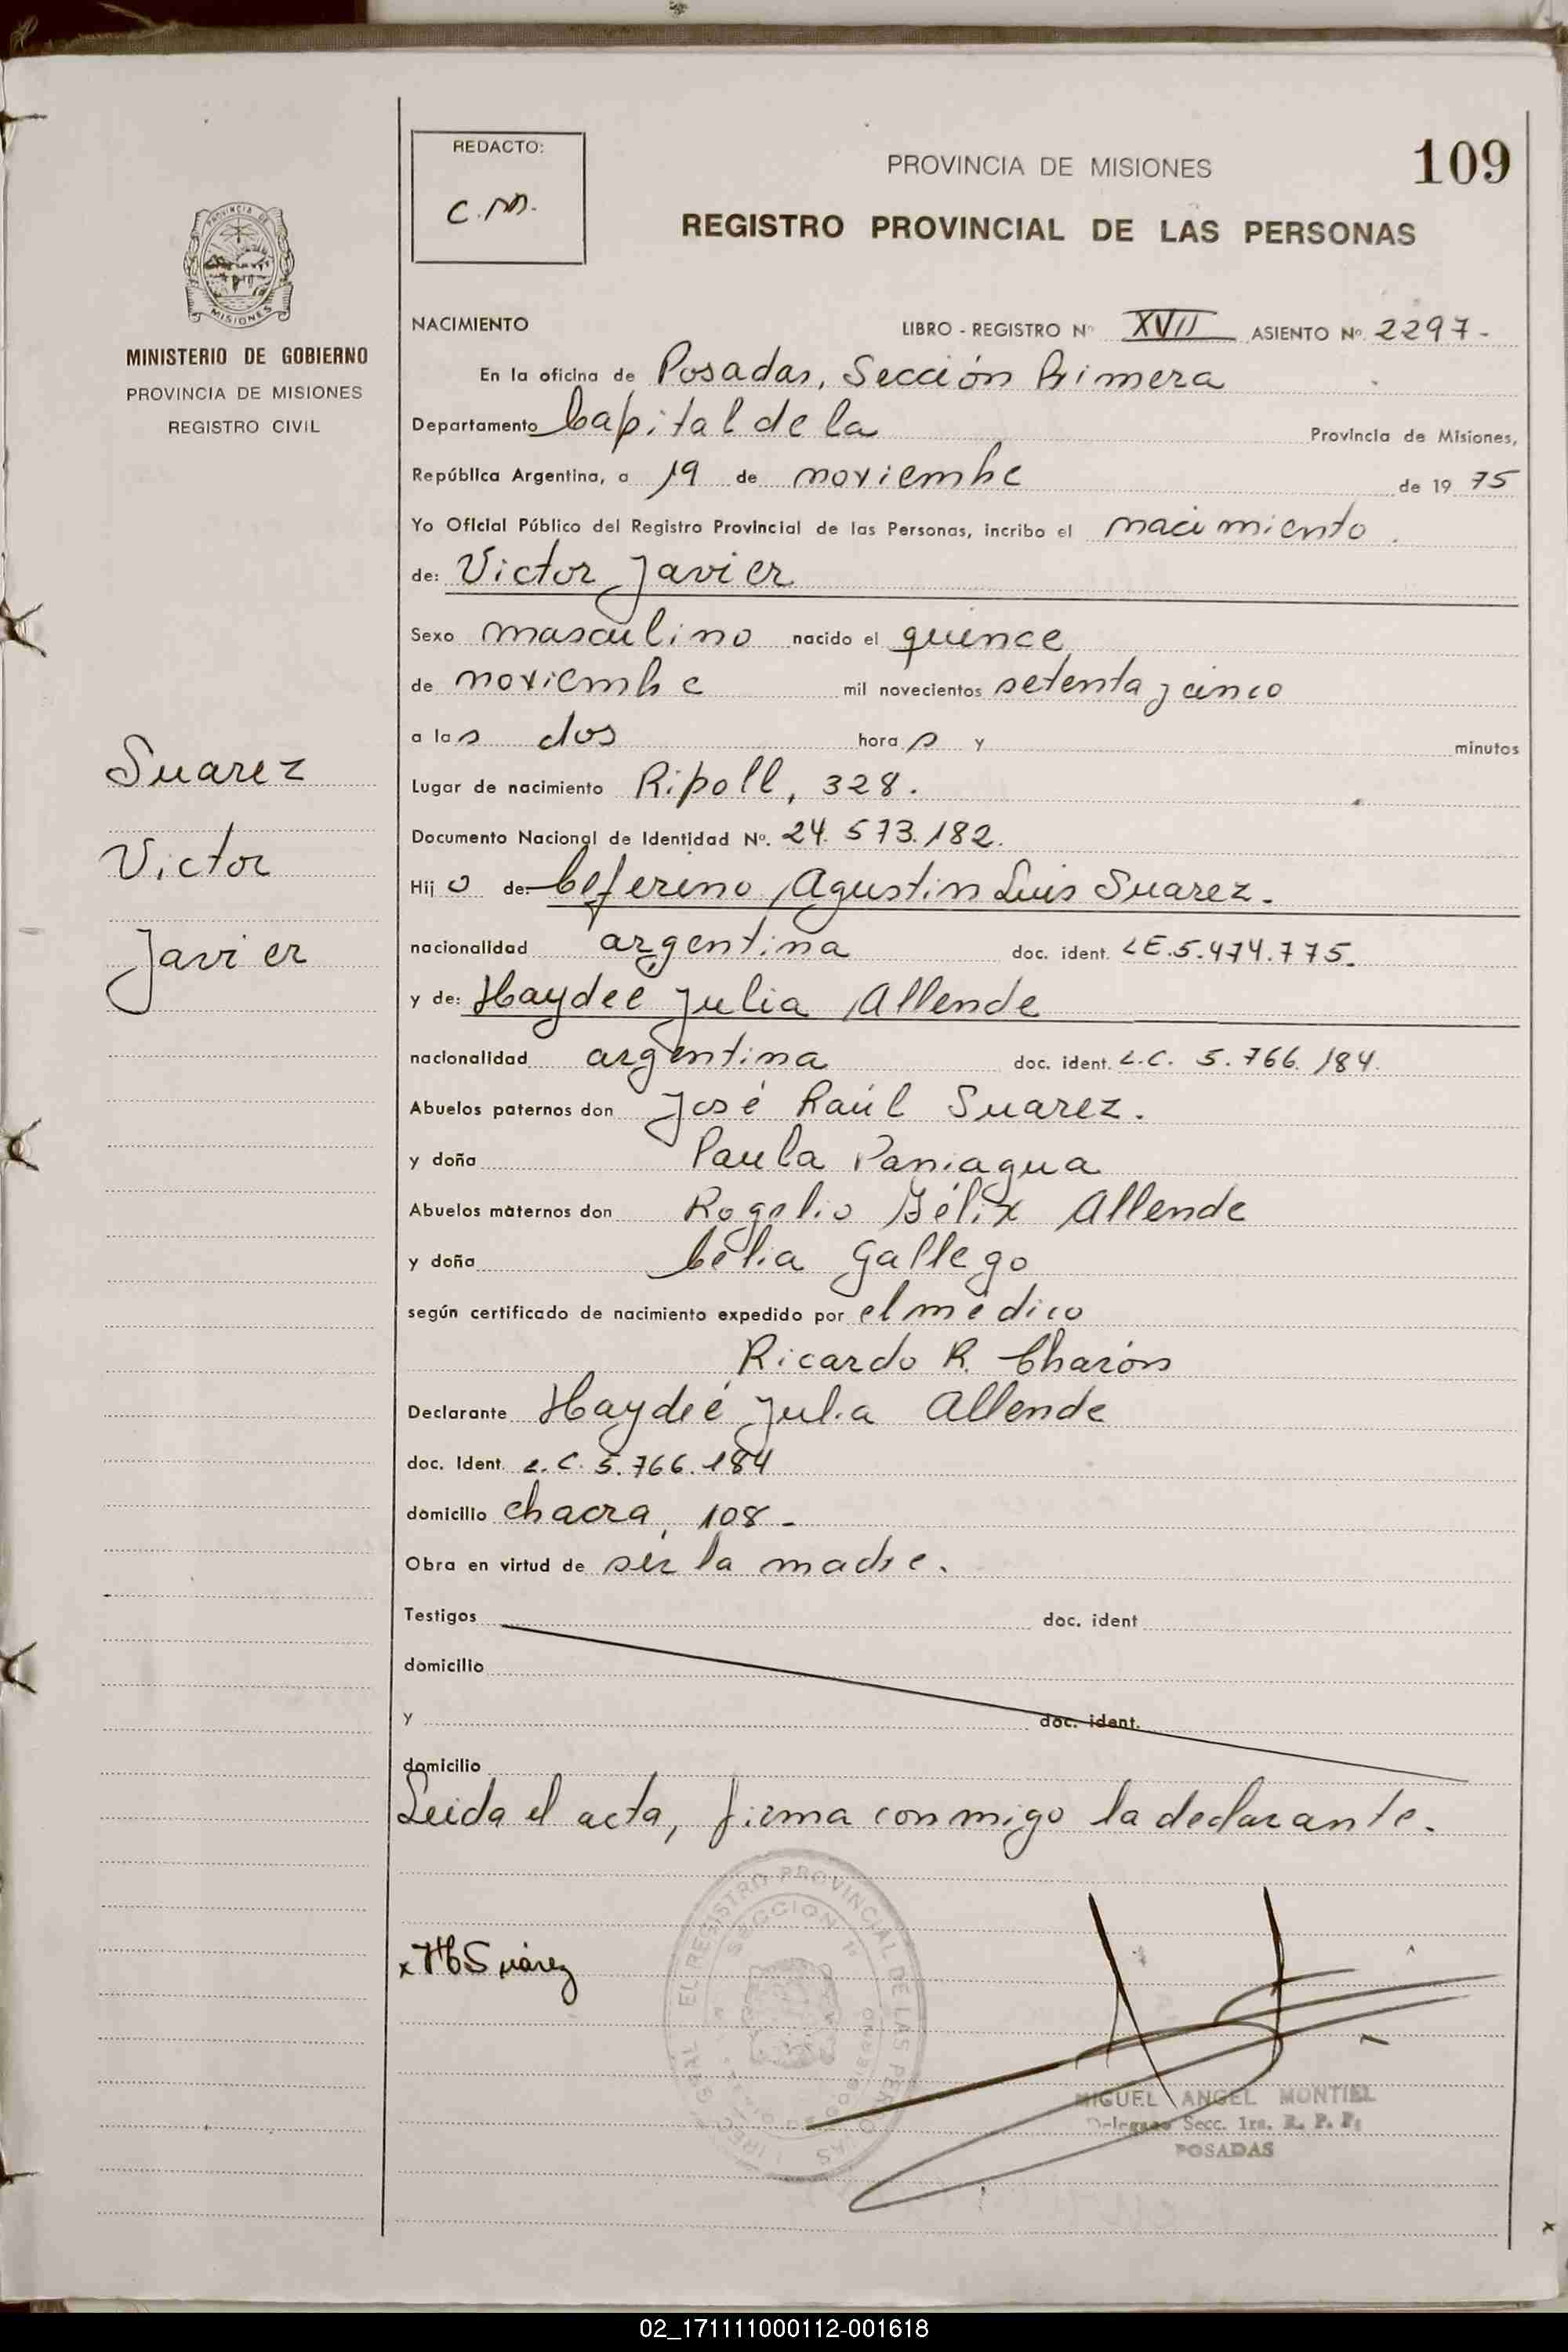 REDACTO:
C.M.
109
PROVINCIA DE MISIONES
REGISTRO PROVINCIAL DE LAS PERSONAS
PROVINCIA DE
MISIONES
MINISTERIO DE GOBIERNO
PROVINCIA DE MISIONES
REGISTRO CIVIL
Suarez
Victor
Javier
NACIMIENTO LIBRO - REGISTRO Nº XVII ASIENTO Nº. 2297-
En la oficina de Posadas, Sección Primera
Departamento Capital de la Provincia de Misiones,
República Argentina, a 19 de noviembre de 19 75
Yo Oficial Público del Registro Provincial de las Personas, incribo el nacimiento.
de: Victor Javier
Sexo masculino nacido el quince
de noviembre mil novecientos setenta y cinco
a las dos horas y minutos
Lugar de nacimiento Ripoll, 328.
Documento Nacional de Identidad Nº. 24.573.182.
Hijo de: Ceferino Agustin Luis Suarez.
nacionalidad argentina doc. ident. LE.5.474.775.
y de: Haydeé Julia Allende
nacionalidad argentina doc. ident. L.C. 5.766.184.
Abuelos paternos don José Raúl Suarez.
y doña Paula Paniagua
Abuelos maternos don Rogelio Félix Allende
y doña Celia Gallego
según certificado de nacimiento expedido por el médico
Ricardo R. Charón
Declarante Haydeé Julia Allende
doc. Ident. L.C. 5.766.184
domicilio chacra, 108-
Obra en virtud de ser la madre.
Testigos doc. ident
domicilio
y doc. ident.
domicilio
Leida el acta, firma conmigo la declarante.
x HSuárez
EL REGISTRO PROVINCIAL DE LAS PERSONAS
SECCION 1ª
MIGUEL ANGEL MONTIEL
Delegado Secc. 1ra. R. P. P.
POSADAS
02_171111000112-001618